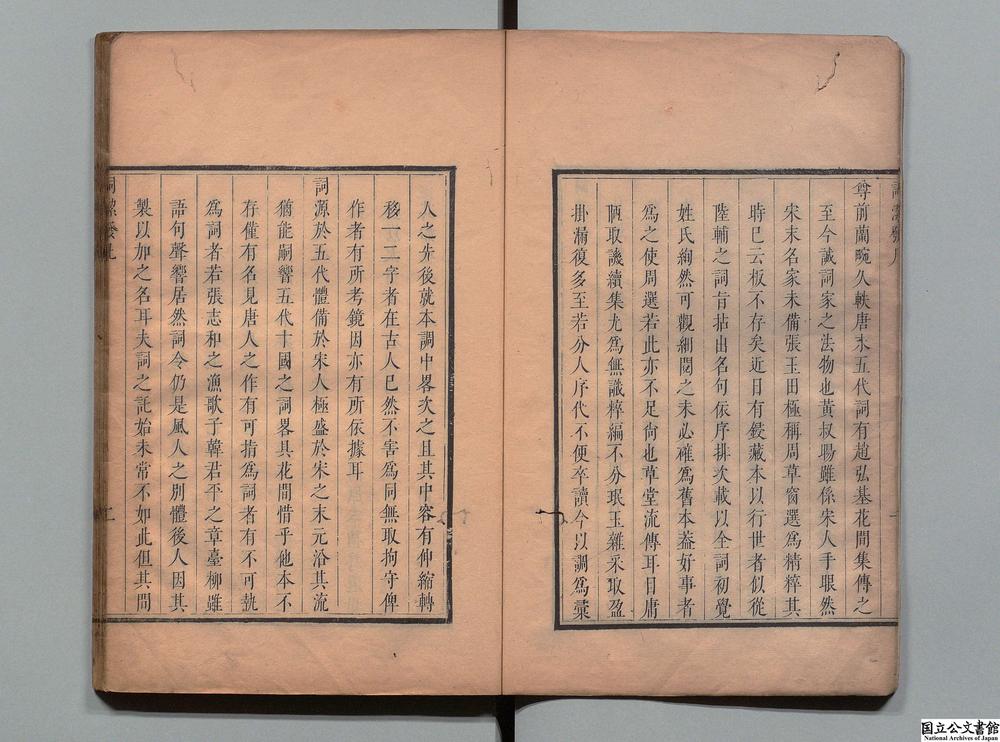 尊前蘭畹久軼唐末五代詞有趙弘基花間集傳之
至今誠詞家之法物也黃叔暘雖係宋人手眼然
宋末名家未備張玉田極稱周草窗選為精粹其
時已云板不存矣近日有鋟藏本以行世者似從
陸輔之詞旨拈出名句依序排次載以全詞初覺
姓氏絢然可觀細閱之未必確為舊本葢好事者
為之使周選若此亦不足尚也草堂流傳耳目庸
陋取譏續集尤為無識粹編不分珉玉雜采取盈
掛漏復多至若分人序代不便卒讀今以調為彚
人之先後就本調中畧次之且其中容有伸縮轉
移一二字者在古人已然不害為同無取拘守俾
作者有所考鏡因亦有所依據耳
詞源於五代體備於宋人極盛於宋之末元沿其流
猶能嗣響五代十國之詞畧具花間惜乎他本不
存僅有名見唐人之作有可指為詞者有不可執
為詞者若張志和之漁歌子韓君平之章臺柳雖
語句聲響居然詞令仍是風人之別體後人因其
製以加之名耳夫詞之託始未常不如此但其間
詞潔發凡
二
国立公文書館
National Archives of Japan